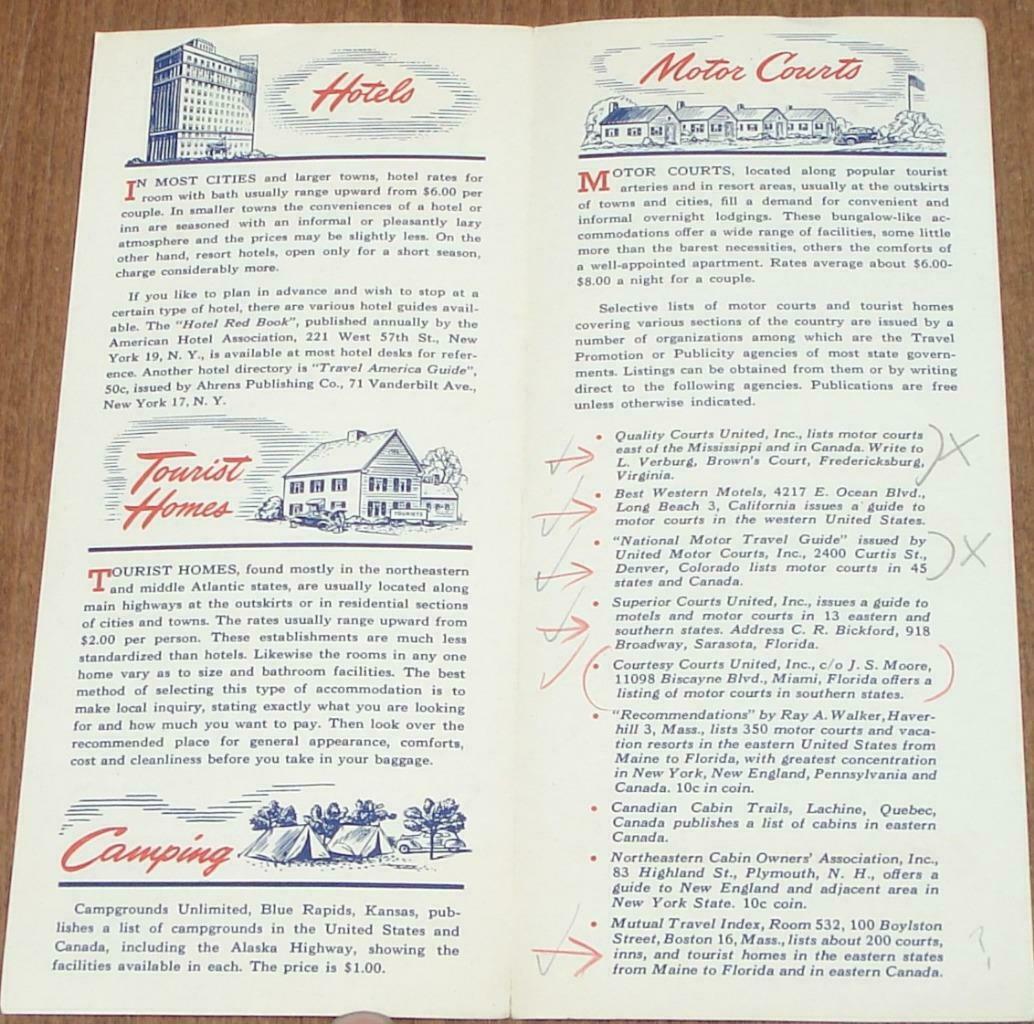 Hotels
IN MOST CITIES and larger towns, hotel rates for
room with bath usually range upward from $6.00 per
couple. In smaller towns the conveniences of a hotel or
inn are seasoned with an informal or pleasantly lazy
atmosphere and the prices may be slightly less. On the
other hand, resort hotels, open only for a short season,
charge considerably more.
If you like to plan in advance and wish to stop at a
certain type of hotel, there are various hotel guides avail-
able. The "Hotel Red Book", published annually by the
American Hotel Association, 221 West 57th St., New
York 19, N. Y., is available at most hotel desks for refer-
ence. Another hotel directory is "Travel America Guide",
50c, issued by Ahrens Publishing Co., 71 Vanderbilt Ave.,
New York 17, N. Y.
Tourist
Homes
TOURISTS
TOURIST HOMES, found mostly in the northeastern
and middle Atlantic states, are usually located along
main highways at the outskirts or in residential sections
of cities and towns. The rates usually range upward from
$2.00 per person. These establishments are much less
standardized than hotels. Likewise the rooms in any one
home vary as to size and bathroom facilities. The best
method of selecting this type of accommodation is to
make local inquiry, stating exactly what you are looking
for and how much you want to pay. Then look over the
recommended place for general appearance, comforts,
cost and cleanliness before you take in your baggage.
Camping
Campgrounds Unlimited, Blue Rapids, Kansas, pub-
lishes a list of campgrounds in the United States and
Canada, including the Alaska Highway, showing the
facilities available in each. The price is $1.00.
Motor Courts
MOTOR COURTS, located along popular tourist
arteries and in resort areas, usually at the outskirts
of towns and cities, fill a demand for convenient and
informal overnight lodgings. These bungalow-like ac-
commodations offer a wide range of facilities, some little
more than the barest necessities, others the comforts of
a well-appointed apartment. Rates average about $6.00-
$8.00 a night for a couple.
Selective lists of motor courts and tourist homes
covering various sections of the country are issued by a
number of organizations among which are the Travel
Promotion or Publicity agencies of most state govern-
ments. Listings can be obtained from them or by writing
direct to the following agencies. Publications are free
unless otherwise indicated.
• Quality Courts United, Inc., lists motor courts
east of the Mississippi and in Canada. Write to
L. Verburg, Brown's Court, Fredericksburg,
Virginia.
X
• Best Western Motels, 4217 E. Ocean Blvd.,
Long Beach 3, California issues a guide to
motor courts in the western United States.
• "National Motor Travel Guide" issued by
United Motor Courts, Inc., 2400 Curtis St.,
Denver, Colorado lists motor courts in 45
states and Canada.
X
• Superior Courts United, Inc., issues a guide to
motels and motor courts in 13 eastern and
southern states. Address C. R. Bickford, 918
Broadway, Sarasota, Florida.
• Courtesy Courts United, Inc., c/o J. S. Moore,
11098 Biscayne Blvd., Miami, Florida offers a
listing of motor courts in southern states.
• "Recommendations" by Ray A. Walker, Haver-
hill 3, Mass., lists 350 motor courts and vaca-
tion resorts in the eastern United States from
Maine to Florida, with greatest concentration
in New York, New England, Pennsylvania and
Canada. 10c in coin.
• Canadian Cabin Trails, Lachine, Quebec,
Canada publishes a list of cabins in eastern
Canada.
• Northeastern Cabin Owners' Association, Inc.,
83 Highland St., Plymouth, N. H., offers a
guide to New England and adjacent area in
New York State. 10c coin.
• Mutual Travel Index, Room 532, 100 Boylston
Street, Boston 16, Mass., lists about 200 courts,
inns, and tourist homes in the eastern states
from Maine to Florida and in eastern Canada.
?